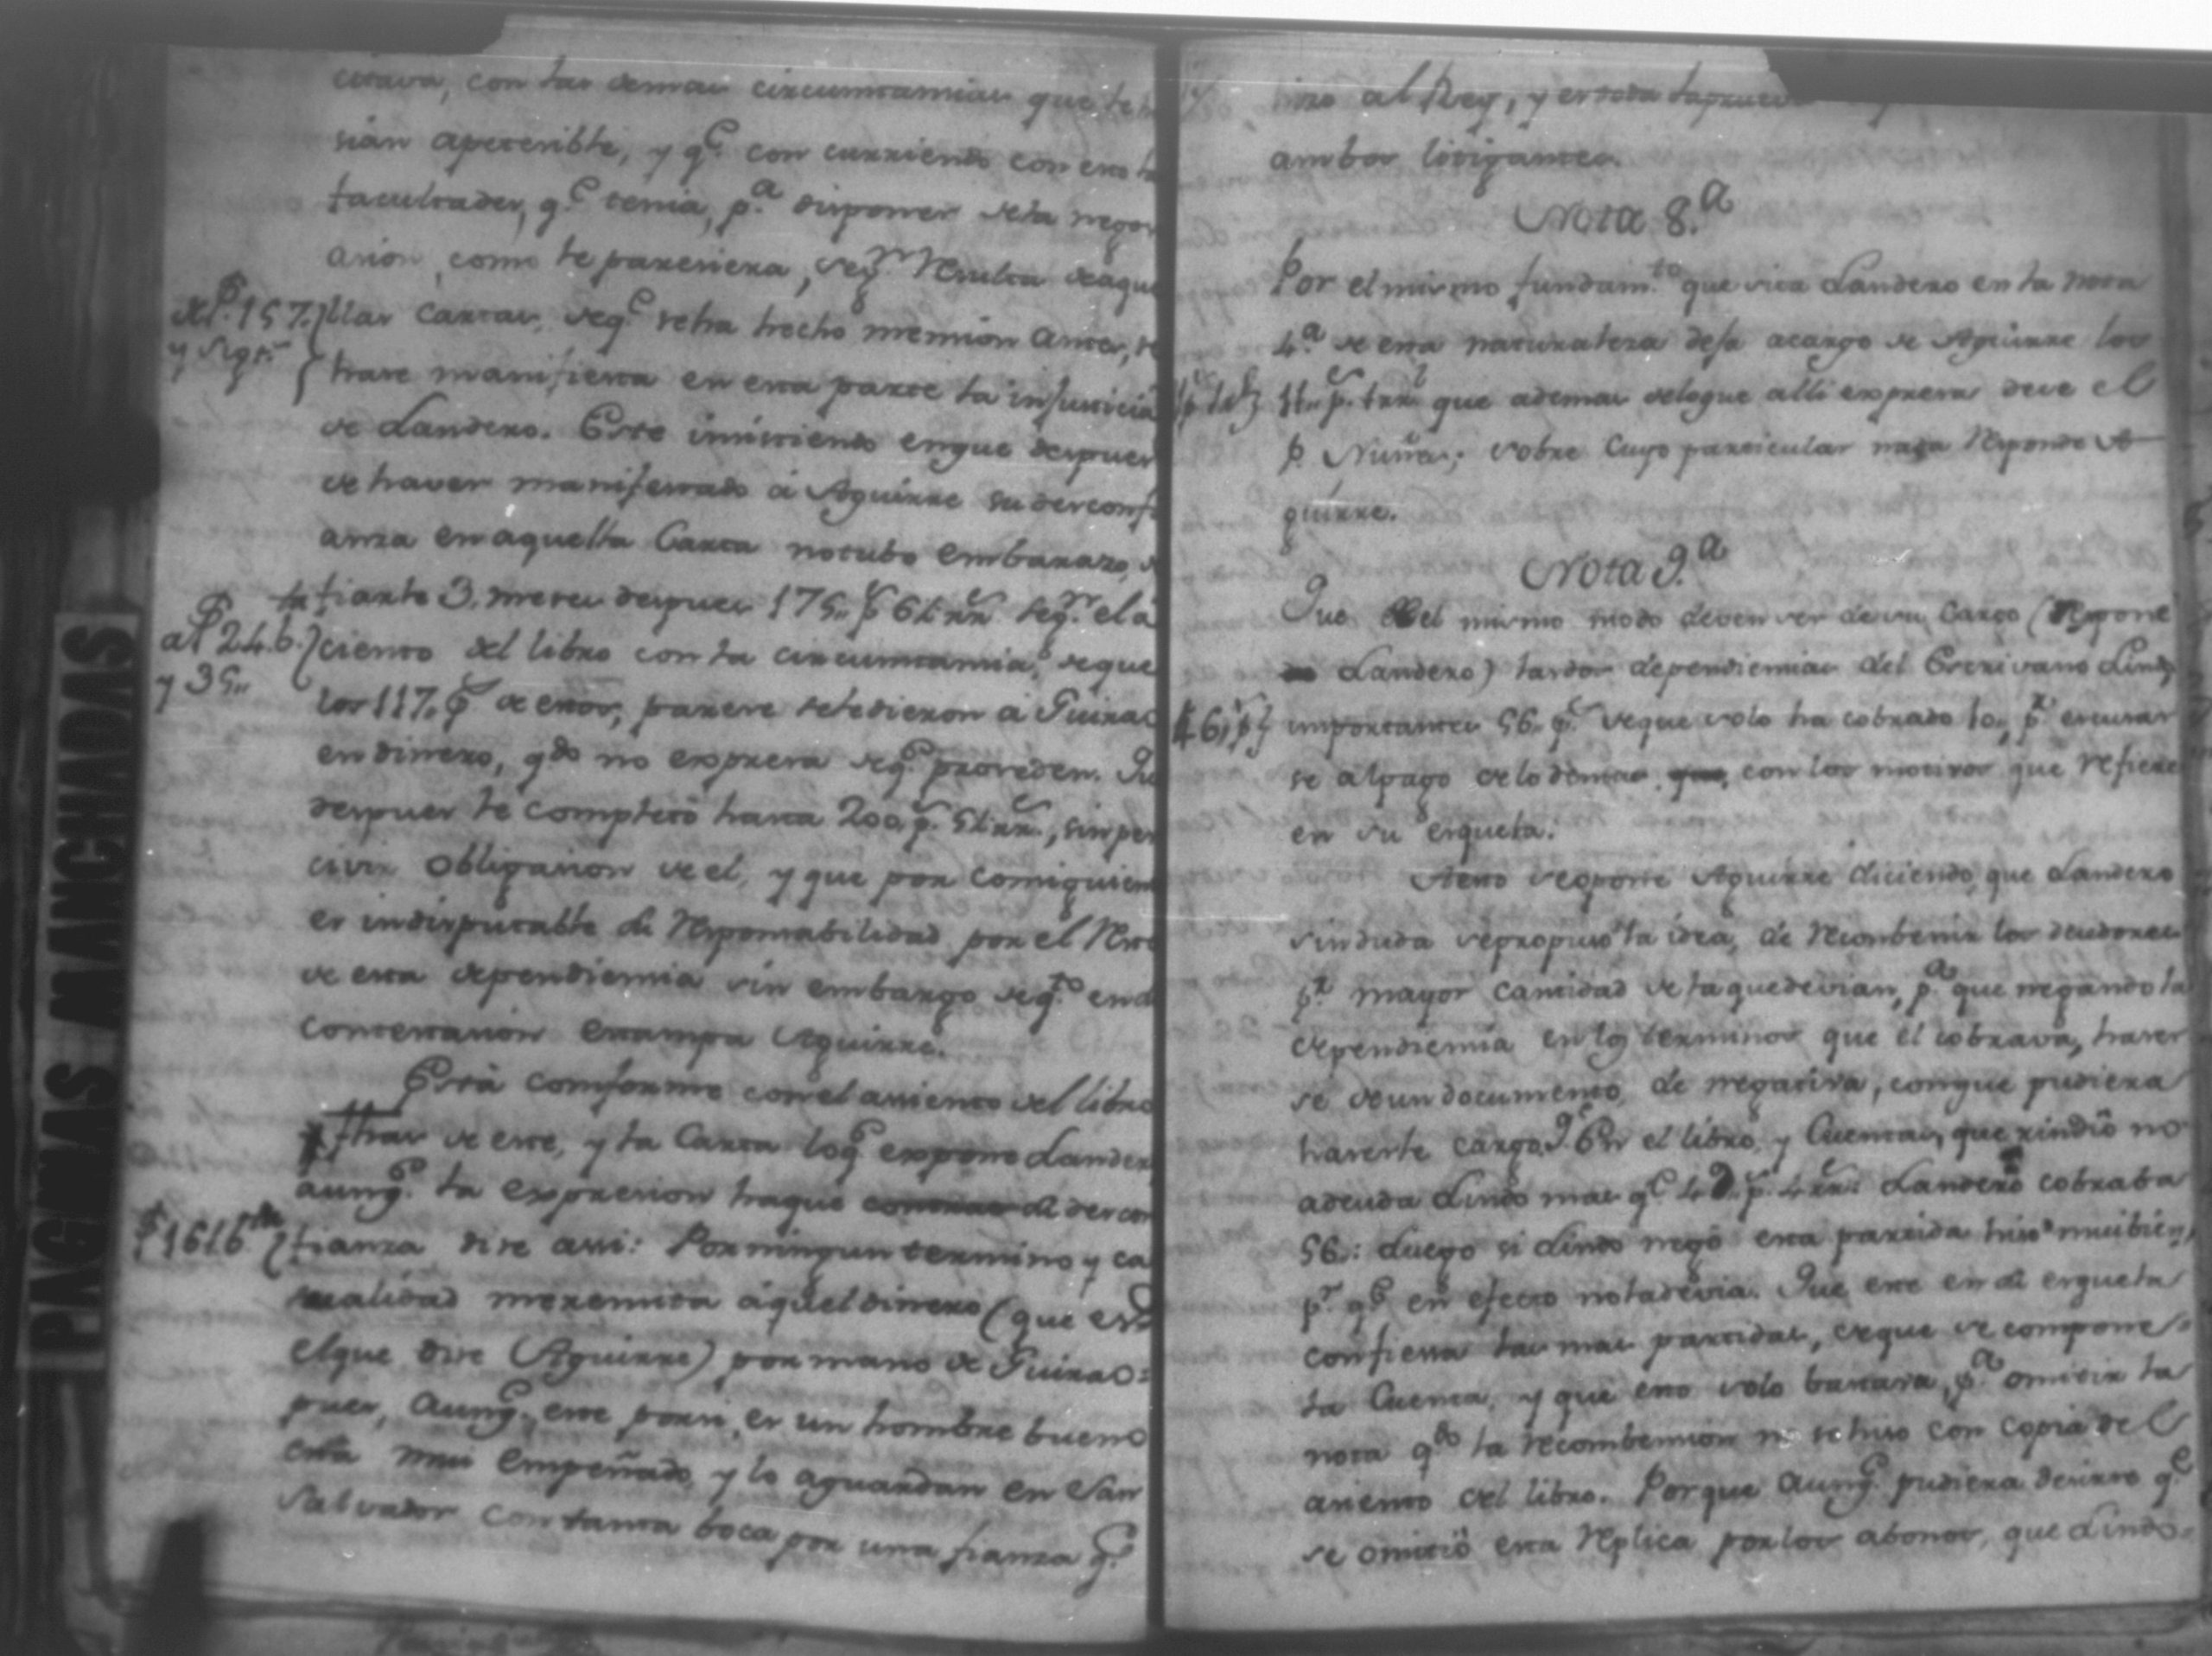 citava, con las demas circumstancias que le
sian apetesible, y q.e con curriendo con esto
facultades, q.e tenia, p.a disponer dela nego
asion, como le paresiera, seg.n Resulta deaque
al f. 157. y sig.tes
llas Cartas, deq.e seha hecho mension antes, se
hase manifiesta en esta parte la injusticia
de Landero. Este insistiendo enque despues
de haver manifestado á Aguirre su desconfi
anza en aquella Carta notubo embarazo,
fiarle 3. meses despues 175 p.s 6 1/2 rr.s seg.n el a
al f. 24. b. y 35
ciento del libro con la circumstancia, deque
los 117. p.s de estos, parese seledieron á Guirao
en dinero, q.do no expresa deq.e proceden. Que
despues le completó hasta 200 p.s 5 1/2 rr.s, sin per
civir obligasion de el, y que por consiguiente
es indisputable su Responsabilidad por el Resto
de esta dependiensia sin embargo deq.to en su
contestasion estampa Aguirre.
Está comforme con el asiento del libro
f. 161 b.
de este, y la Carta loq.e expone Landero
aunq.e la expresion traque su descon
fianza dise assi: Por ningun termino y ca
sualidad meremita áquel dinero (que es
elque dise Aguirre) por mano de Guirao:
pues, aunq.e este porsi, es un hombre bueno
está mui empeñado, y lo aguardan en San
Salvador con tanta boca por una fianza q.e
hizo al Rey, y
ambos litigantes.
Nota 8.a
Por el mismo fundam.to que sita Landero en la nota
4.a de esta naturaleza deja acargo de Aguirre los
p.s que ademas deloque alli expresa deve el
P. Nuñes; sobre cuyo particular nada Responde A
guirre.
Nota 9.a
Que del mismo modo deven ser desu cargo (Repone
Landero) las dos dependiensias del Escrivano Lindo
46 p.s
importantes 56. p.s deque solo ha cobrado 10, p.r escusar
se alpago delo demas con los motivos que refiere
en su esqueta.
Aesto Repone Aguirre diciendo, que Landero
sinduda sepropuso la idea, de Recombenir los deudores
p.r mayor cantidad dela quedevian, p.a que negando la
dependiensia en los terminos que el cobrava, haser
se deun documento, de negativa, conque pudiera
haserle cargo. Q.e En el libro, y Cuentas, que rindió no
adeuda Lindo mas q.e 4 p.s 4 rr.s Landero cobraba
56: Luego si Lindo negó esta partida hiso mui bien,
p.r q.e en efecto noladevia. Que este en su esqueta
confiesa las mas partidas, deque se compone
la Cuenta, y que esto solo bastava, p.a omitir la
nota q.do la recombension no se hiso con copia del
asiento del libro. Porque aunq.e pudiera desirse q.e
se omitió esta Replica por los abonos, que Lindo
PAGINAS MANCHADAS